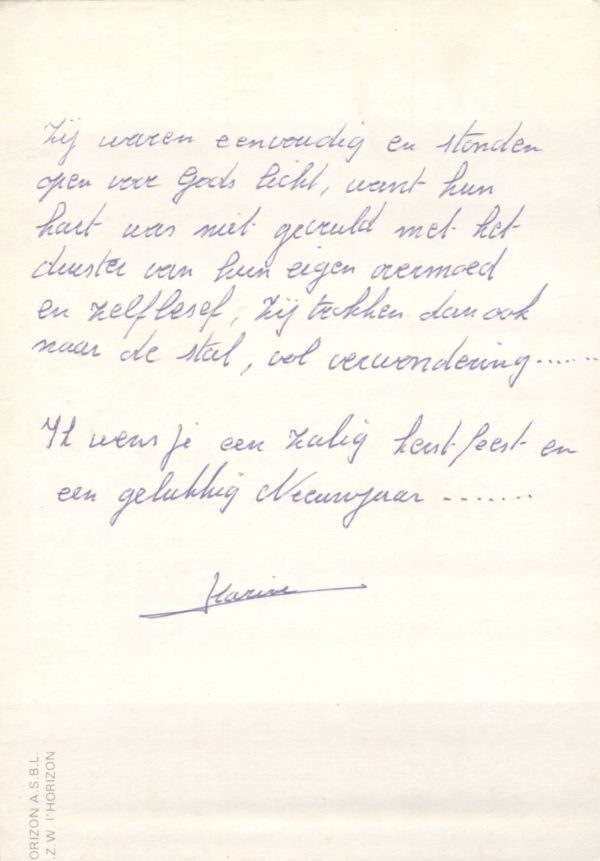 Zij waren eenvoudig en stonden
open voor Gods licht, want hun
hart was niet gevuld met het
duister van hun eigen overmoed
en zelflesef, Zij trokken dan ook
naar de stal, vol verwondering.......
Ik wens je een zalig kerstfeest en
een gelukkig Nieuwjaar .......
Karine
ORIZON A.S.B.L.
.Z.W. l'HORIZON